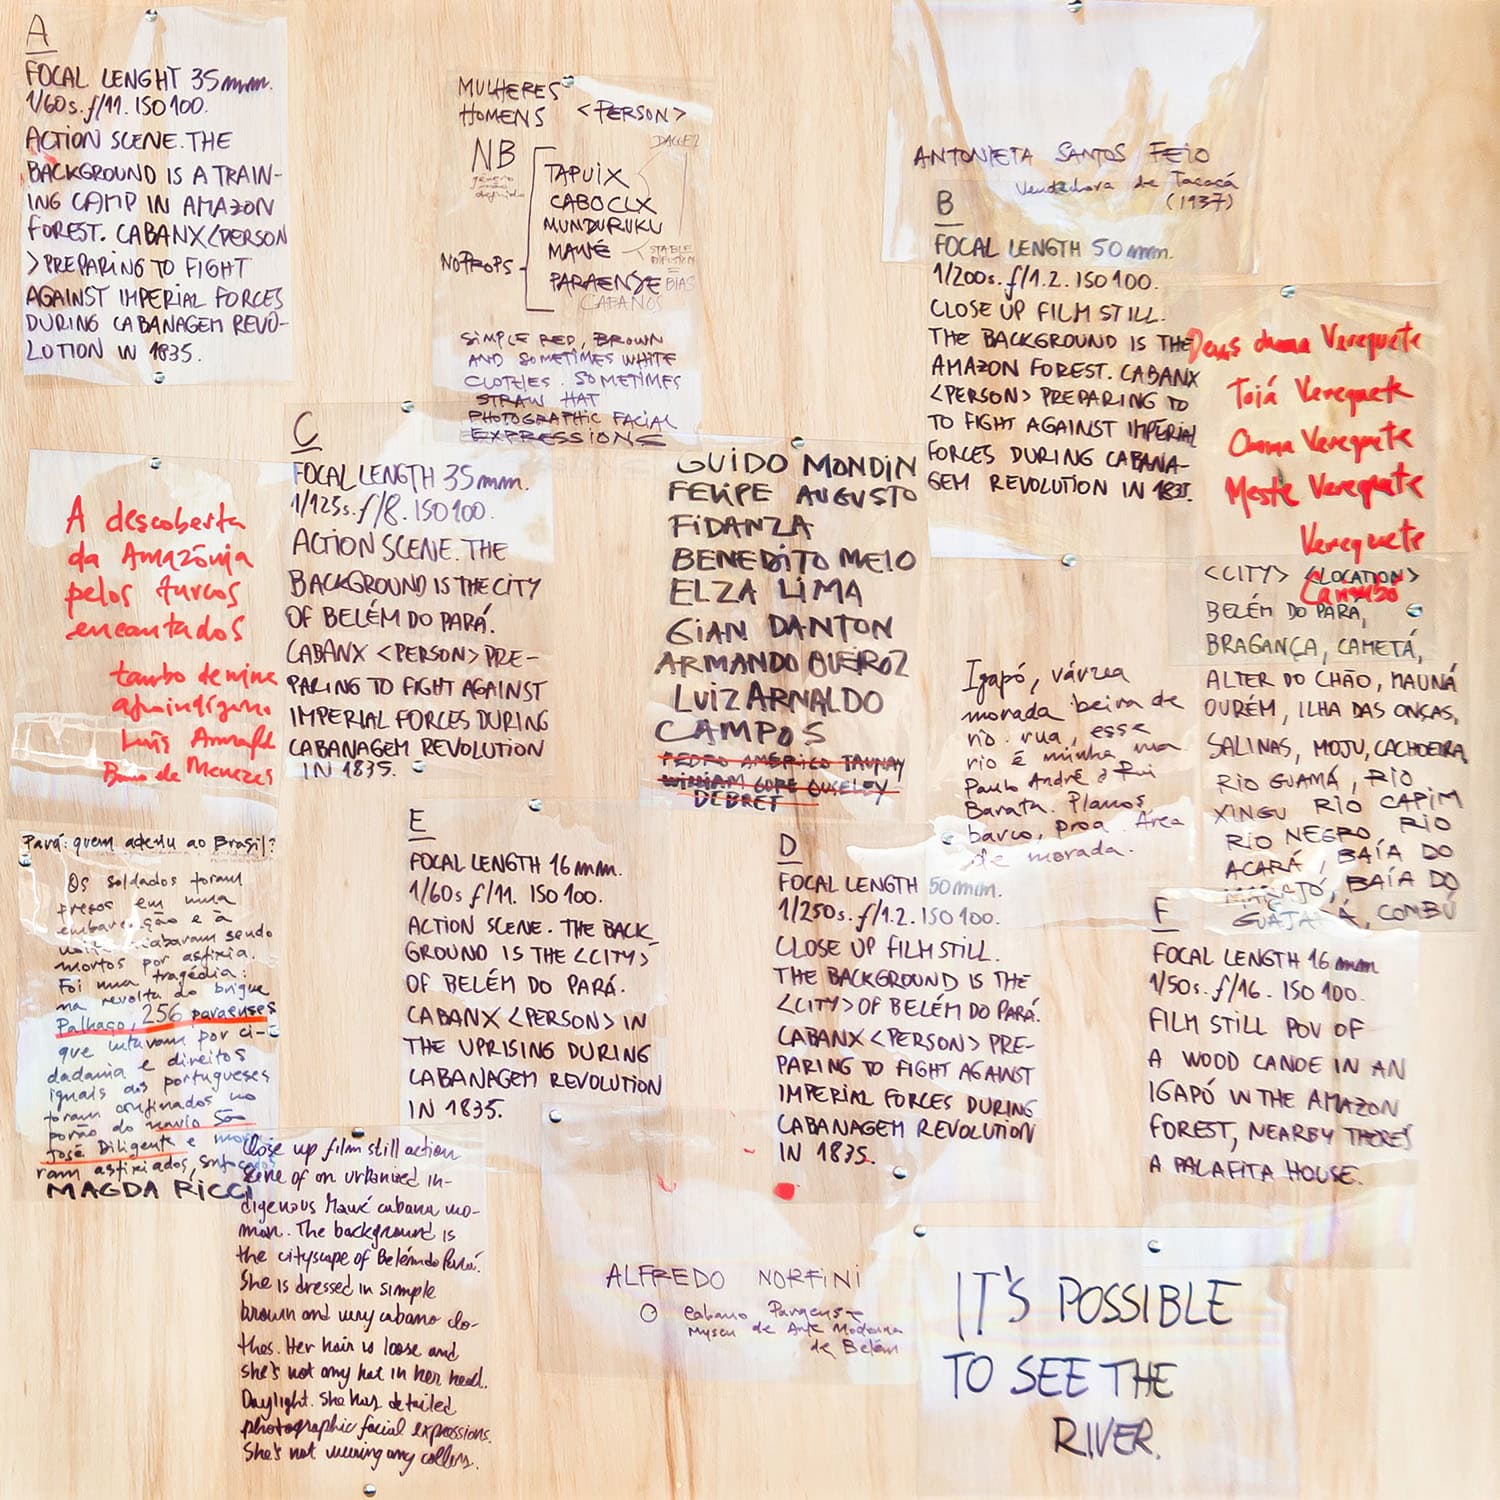 A
FOCAL LENGHT 35mm.
1/60s. f/11. ISO 100.
ACTION SCENE. THE
BACKGROUND IS A TRAIN-
ING CAMP IN AMAZON
FOREST. CABANX <PERSON
> PREPARING TO FIGHT
AGAINST IMPERIAL FORCES
DURING CABANAGEM REVO-
LUTION IN 1835.
MULHERES
HOMENS <PERSON>
NB
gênero
não
definido
DALLE 2
TAPUIX
CABOCLX
MUNDURUKU
MAWÉ
PARAENSE
CABANOS
NO PROPS
STABLE
DIFUSION
=
BIAS
SIMPLE RED, BROWN
AND SOMETIMES WHITE
CLOTHES. SOMETIMES
STRAW HAT
PHOTOGRAPHIC FACIAL
EXPRESSIONS
ANTONIETA SANTOS FEIO
Vendedora de Tacacá
(1937)
B
FOCAL LENGTH 50mm.
1/200s. f/1.2. ISO 100.
CLOSE UP FILM STILL.
THE BACKGROUND IS THE
AMAZON FOREST. CABANX
<PERSON> PREPARING TO
TO FIGHT AGAINST IMPERIAL
FORCES DURING CABANA-
GEM REVOLUTION IN 1835.
Verequete
Toiá Verequete
Verequete
Verequete
Verequete
C
FOCAL LENGTH 35mm.
1/125s. f/8. ISO 100.
ACTION SCENE. THE
BACKGROUND IS THE CITY
OF BELÉM DO PARÁ.
CABANX <PERSON> PRE-
PARING TO FIGHT AGAINST
IMPERIAL FORCES DURING
CABANAGEM REVOLUTION
IN 1835.
A descoberta
da Amazônia
pelos turcos
encantados
tambo de mina
afroindígena
Luis
de Menezes
GUIDO MONDIN
FELIPE AUGUSTO
FIDANZA
BENEDITO MELO
ELZA LIMA
GIAN DANTON
ARMANDO QUEIROZ
LUIZ ARNALDO
CAMPOS
PEDRO AMÉRICO TAUNAY
WILLIAM GORE OUSELEY
DEBRET
<CITY> <LOCATION>
BELÉM DO PARÁ,
BRAGANÇA, CAMETÁ,
ALTER DO CHÃO, MAUNÁ
OURÉM, ILHA DAS ONÇAS,
SALINAS, MOJU, CACHOEIRA,
RIO GUAMÁ, RIO
XINGU RIO CAPIM
RIO NEGRO, RIO
ACARÁ, BAÍA DO
MARAJÓ, BAÍA DO
GUAJARÁ, COMBÚ
Igapó, várzea
morada beira de
rio. rua, esse
rio é minha rua
Paulo André e Rui
Barata. Planos
barco, proa. Área
de morada.
Pará: quem aderiu ao Brasil?
Os soldados foram
presos em uma
embarcação e à
noite acabaram sendo
mortos por asfixia.
Foi uma tragédia:
na revolta do brigue
Palhaço, 256 paraenses
que lutavam por ci-
dadania e direitos
iguais aos portugueses
foram confinados no
porão do navio São
José Diligente e mor
ram asfixiados,
MAGDA RICCI
E
FOCAL LENGTH 16mm.
1/60s f/11. ISO 100.
ACTION SCENE. THE BACK-
GROUND IS THE <CITY>
OF BELÉM DO PARÁ.
CABANX <PERSON> IN
THE UPRISING DURING
CABANAGEM REVOLUTION
IN 1835.
D
FOCAL LENGTH 50mm.
1/250s. f/1.2. ISO 100.
CLOSE UP FILM STILL.
THE BACKGROUND IS THE
<CITY> OF BELÉM DO PARÁ.
CABANX <PERSON> PRE-
PARING TO FIGHT AGAINST
IMPERIAL FORCES DURING
CABANAGEM REVOLUTION
IN 1835.
F
FOCAL LENGTH 16mm
1/50s. f/16. ISO 100.
FILM STILL POV OF
A WOOD CANOE IN AN
IGAPÓ IN THE AMAZON
FOREST, NEARBY THERE'S
A PALAFITA HOUSE.
Close up film still action
scene of an urbanized in-
digenous Mawé cabana wo-
man. The background is
the cityscape of Belém do Pará.
She is dressed in simple
brown and very cabano clo-
thes. Her hair is loose and
she's not any hat in her head.
Daylight. She has detailed
photographic facial expressions.
She's not wearing any collars.
ALFREDO NORFINI
O Cabano Paraense
Museu de Arte Moderna
de Belém
IT'S POSSIBLE
TO SEE THE
RIVER.